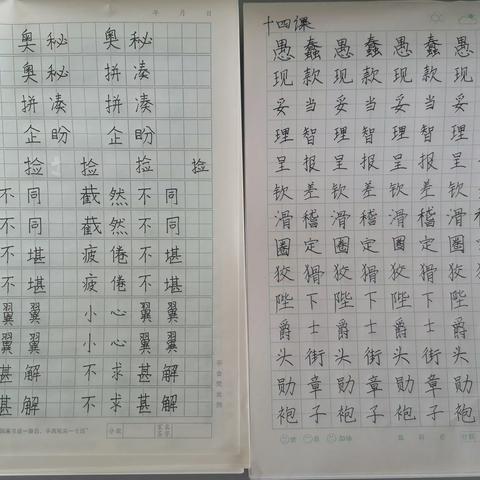 年 月 日
奥秘 奥秘
奥秘 拼凑
拼凑 拼凑
企盼 企盼
捡 捡 捡 捡
不同 截然不同
不同 截然不同
不堪 疲倦不堪
不堪 疲倦不堪
翼翼 小心翼翼
翼翼 小心翼翼
甚解 不求甚解
甚解 不求甚解
十四课
愚蠢愚蠢愚蠢愚
现款现款现款现
妥当妥当妥当妥
理智理智理智理
呈报呈报呈报呈
钦差钦差钦差钦
滑稽滑稽滑稽滑
圈定圈定圈定圈
狡猾狡猾狡猾狡
陛下陛下陛下陛
爵士爵士爵士爵
头衔头衔头衔头
勋章勋章勋章勋
袍子袍子袍子袍